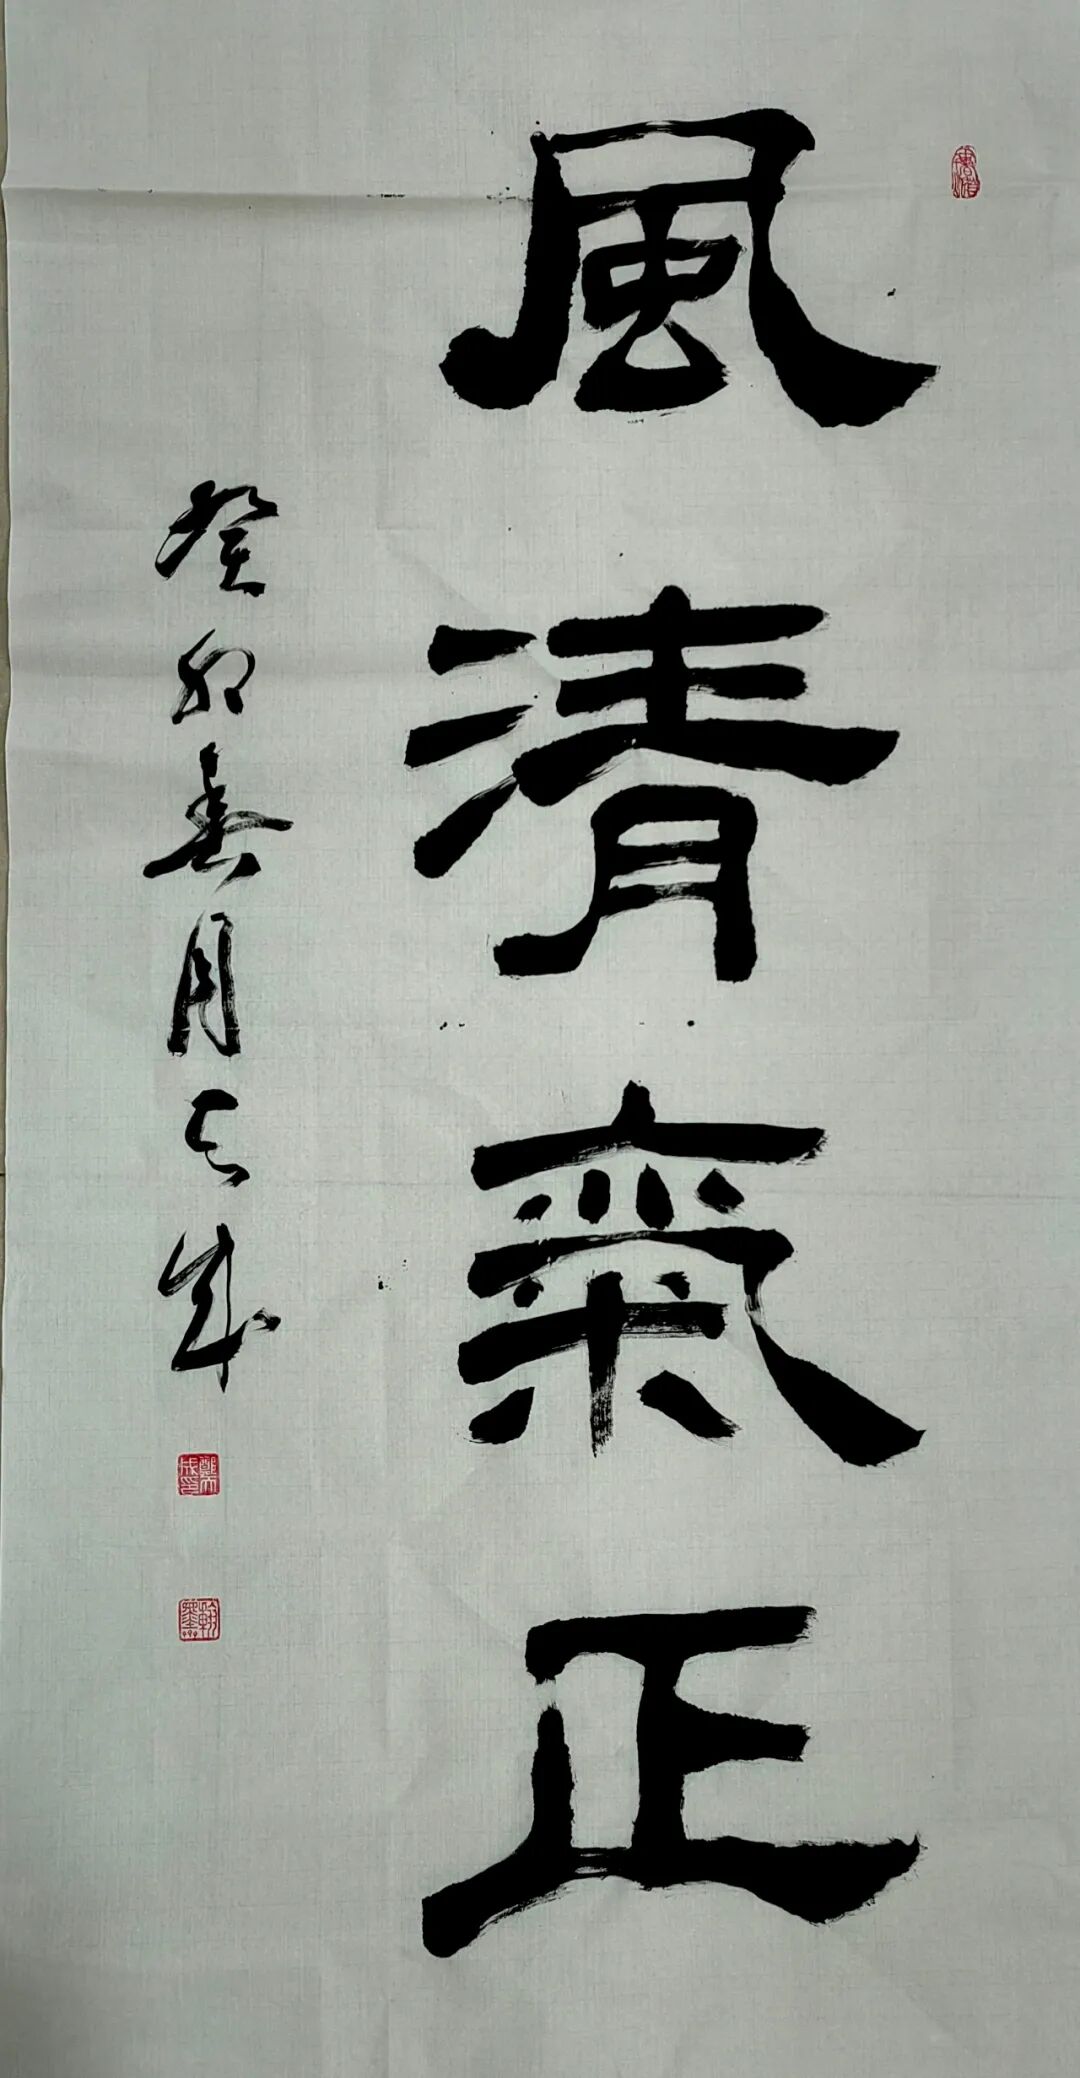 風清氣正
癸卯春月天成